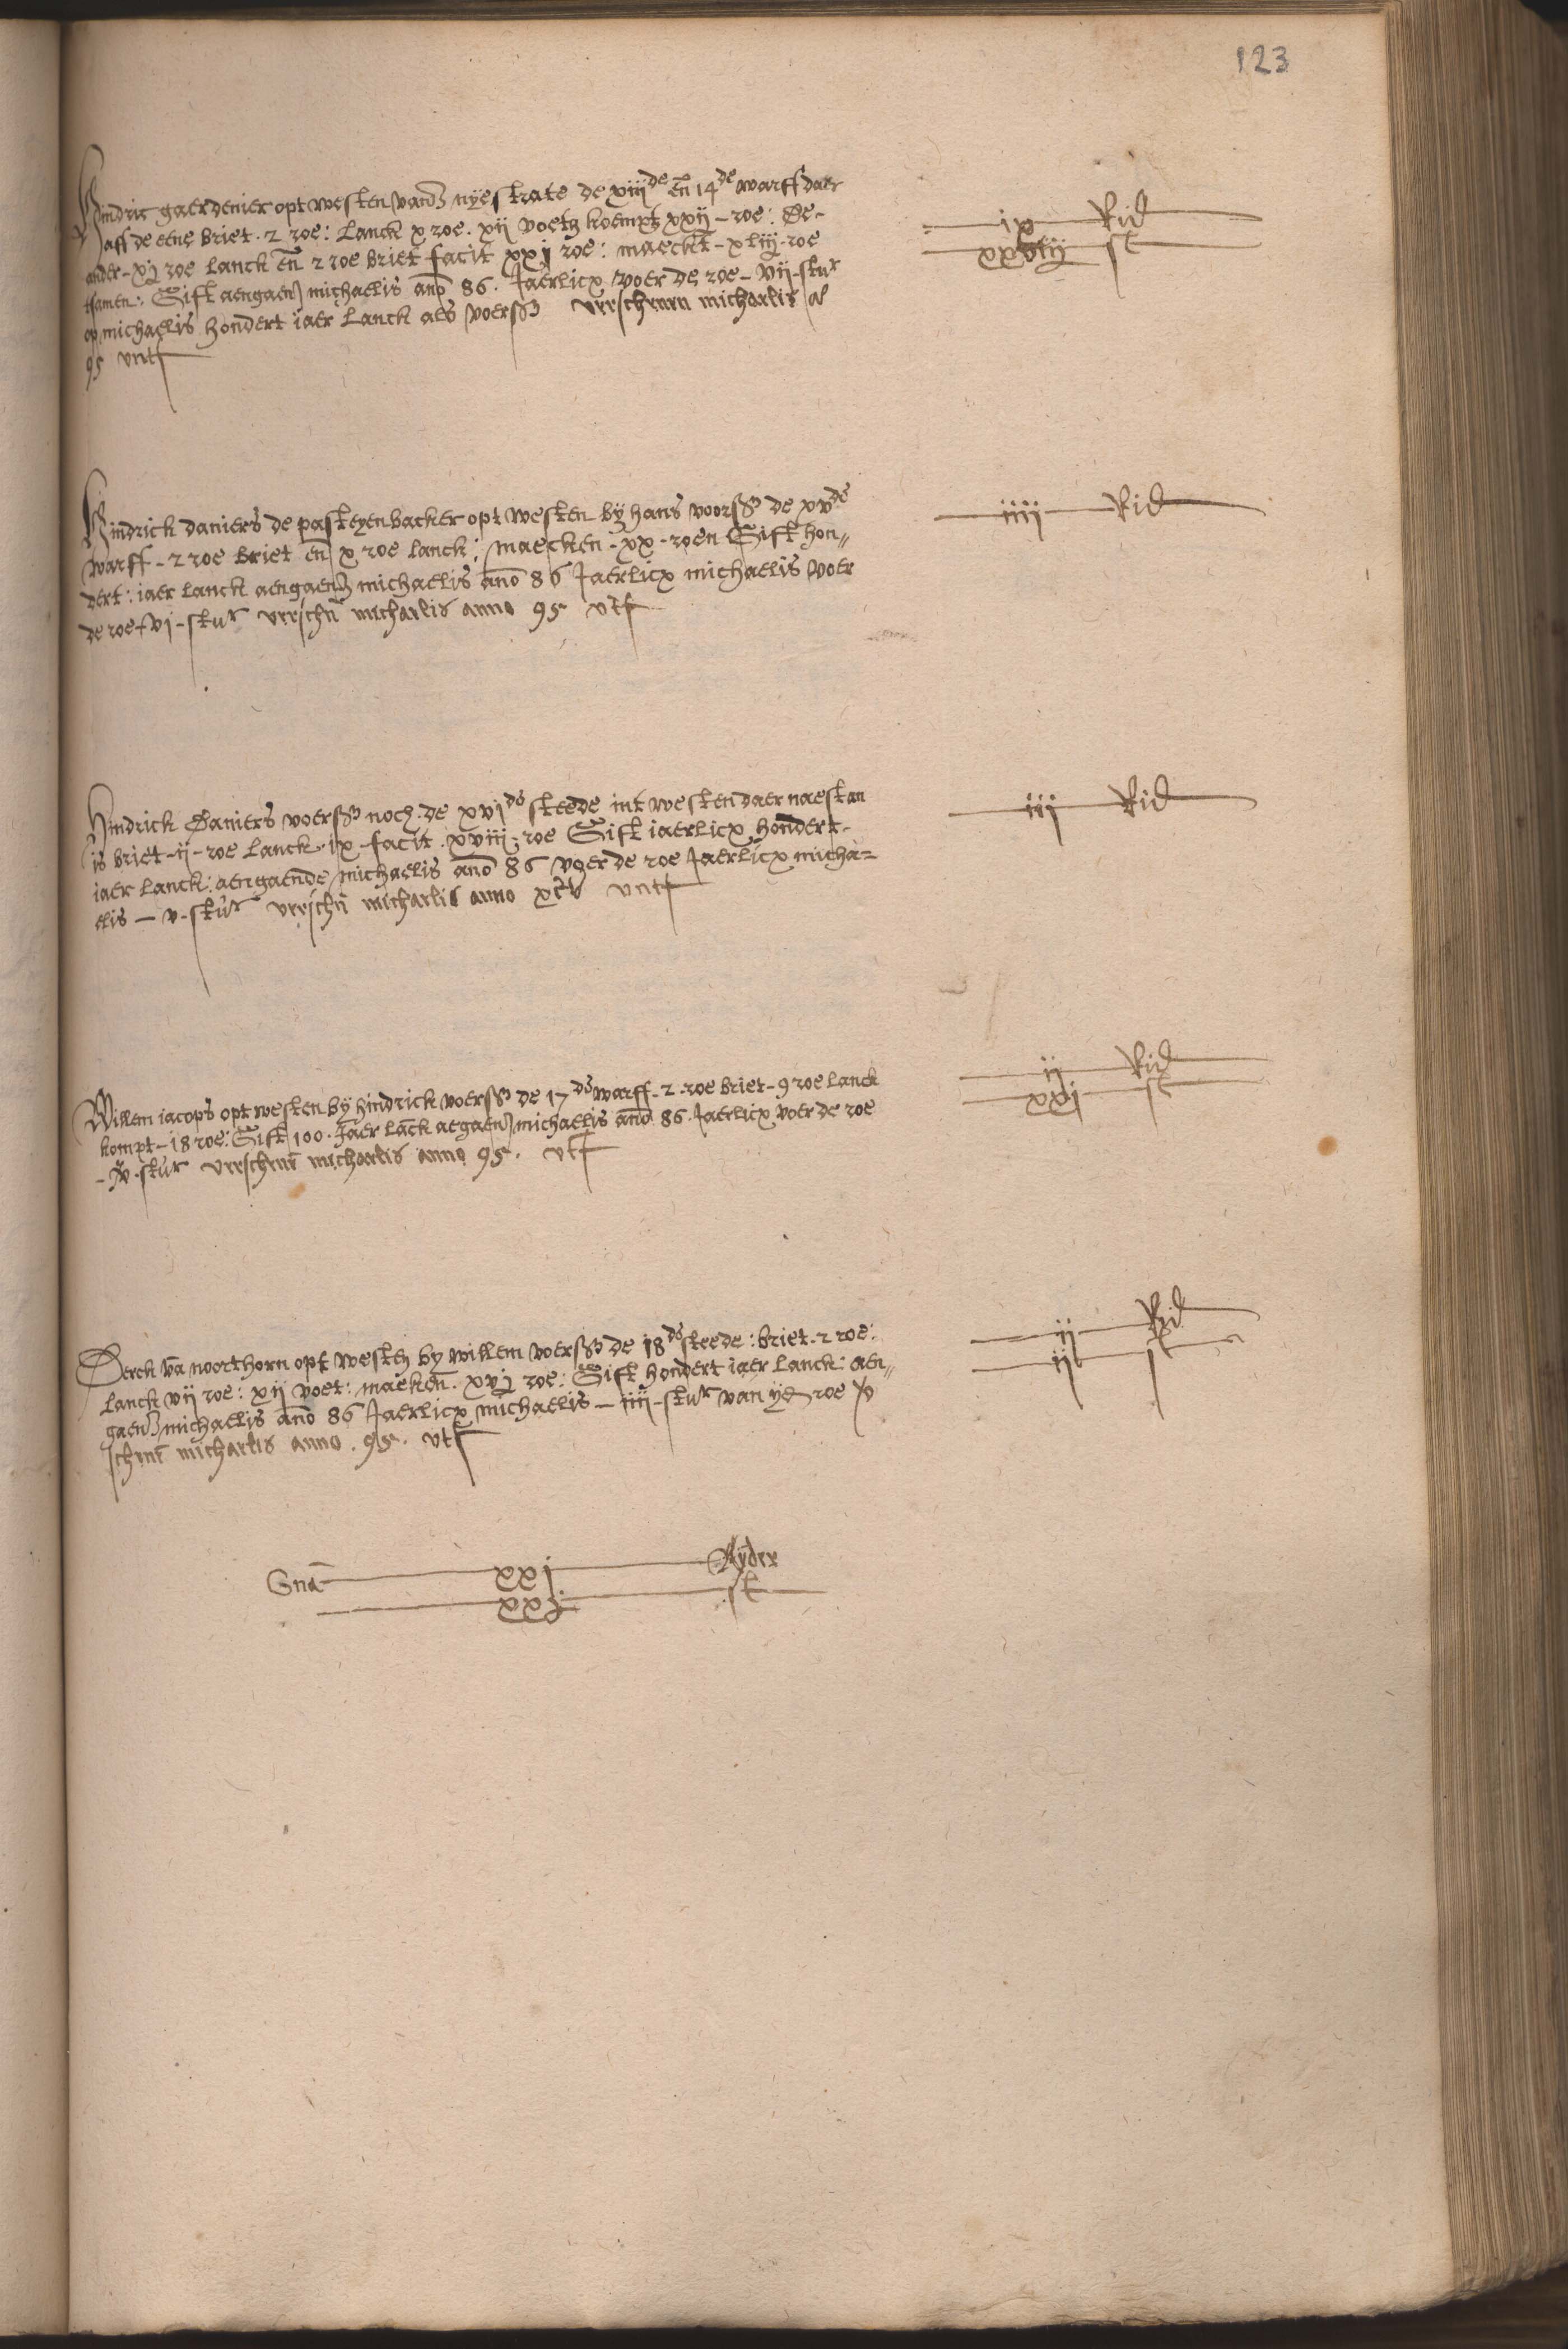 123
Hindric gaerdenier opt westen vand nyestrate de xiij de en 14 de warff daer
aff de eene briet . 2 roe : lanck x roe . xij voetz koempt xxij – roe : De –
ander – xj roe lanck en 2 roe briet facit xxj roe : maeckt – xliij – roe
tsamen : Gift aengaen michaelis ano 86 . Jaerlicx voer de roe – vij – stur
op michaelis hondert iaer lanck als voersz verschenen michaelis a°
95 vnts
ix Rid
xxviij st
Hindrick daniers de pasteyenbacker opt westen by hans voorsz de xv de
warff – 2 roe briet en x roe lanck : maecken – xx – roen Gift hon„
dert : iaer lanck aengaend michaelis ano 86 Jaerlicx michaelis voer
de roe – vj – stur verschen michaelis anno 95 vts
iiij Rid
Hindrick Daniers voersz noch . de xvj de steede int westen daer naest an
is briet – ij – roe lanck . ix – facit . xviij ; roe Gift iaerlicx hondert –
iaer lanck : aengaende michaelis ano 86 voer de roe Jaerlicx micha=
elis – v – stur verschen michaelis anno xcv vnts
iij Rid
Willem iacops opt westen by hindrick voersz de 17 de warff – 2 – roe briet – 9 roe lanck
kompt – 18 roe : Gift 100 . Jaer lack aegaen michaelis ano 86 . Jaerlicx voer de roe
stur verschene michaelis anno 95 . vts
ij Rid
xxj st
Derck va noorthorn opt westen by willem voersz de 18 de steede : briet . 2 roe :
lanck vij roe : xij voet : maeken . xvj roe : Gift hondert iaer lanck : aen„
gaend michaelis ano 86 Jaerlicx michaelis – iiij – stur van yder roe v
schene michaelis anno . 95 . vts
ij Rid
ij st
Sma xxj Ryder
st